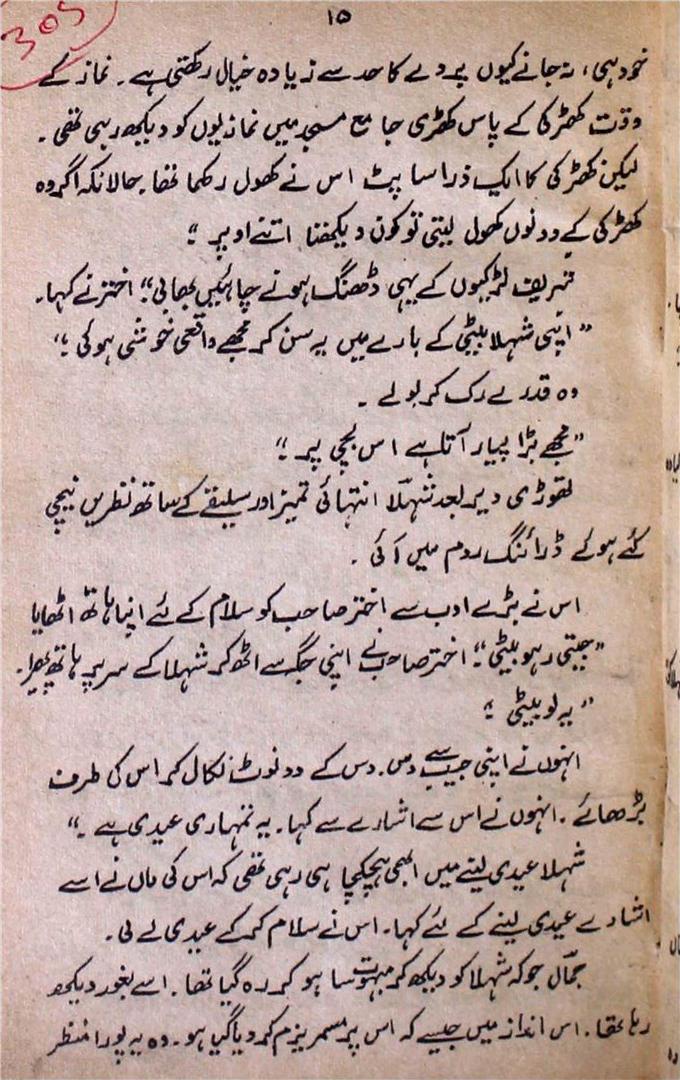 ۱۵
305
خود ہی، نہ جانے کیوں پردے کا حد سے زیادہ خیال رکھتی ہے۔ نماز کے
وقت کھڑکی کے پاس کھڑی جامع مسجد میں نمازیوں کو دیکھ رہی تھی۔
لیکن کھڑکی کا ایک ذرا سا پٹ اس نے کھول رکھا تھا۔ حالانکہ اگر وہ
کھڑکی کے دونوں کھول لیتی تو کون دیکھتا اتنے اوپر "
شریف لڑکیوں کے یہی ڈھنگ ہونے چاہئیں بھابی" اختر نے کہا۔
" اپنی شہلا بیٹی کے بارے میں یہ سن کر مجھے واقعی خوشی ہوئی "
وہ قدرے رک کر بولے ۔
" مجھے بڑا پیار آتا ہے اس بچی پر "
تھوڑی دیر بعد شہلا انتہائی تمیز اور سلیقے کے ساتھ نظریں نیچی
کئے ہوئے ڈرائنگ روم میں آئی ۔
اس نے بڑے ادب سے اختر صاحب کو سلام کے لئے اپنا ہاتھ اٹھایا
" جیتی رہو بیٹی" اختر صاحب نے اپنی جگہ سے اٹھ کر شہلا کے سر پر ہاتھ پھیرا۔
" یہ لو بیٹی "
انہوں نے اپنی جیب سے دس۔ دس کے دو نوٹ نکال کر اس کی طرف
بڑھائے ۔ انہوں نے اس سے اشارے سے کہا۔ یہ تمہاری عیدی ہے ۔"
شہلا عیدی لینے میں ابھی ہچکچا ہی رہی تھی کہ اس کی ماں نے اسے
اشارے عیدی لینے کے لئے کہا۔ اس نے سلام کر کے عیدی لے لی۔
جمال جو کہ شہلا کو دیکھ کر مبہوت سا ہو کر رہ گیا تھا۔ اسے بغور دیکھ
رہا تھا۔ اس انداز میں جیسے کہ اس پر مسمریزم کر دیا گیا ہو۔ وہ یہ پورا منظر